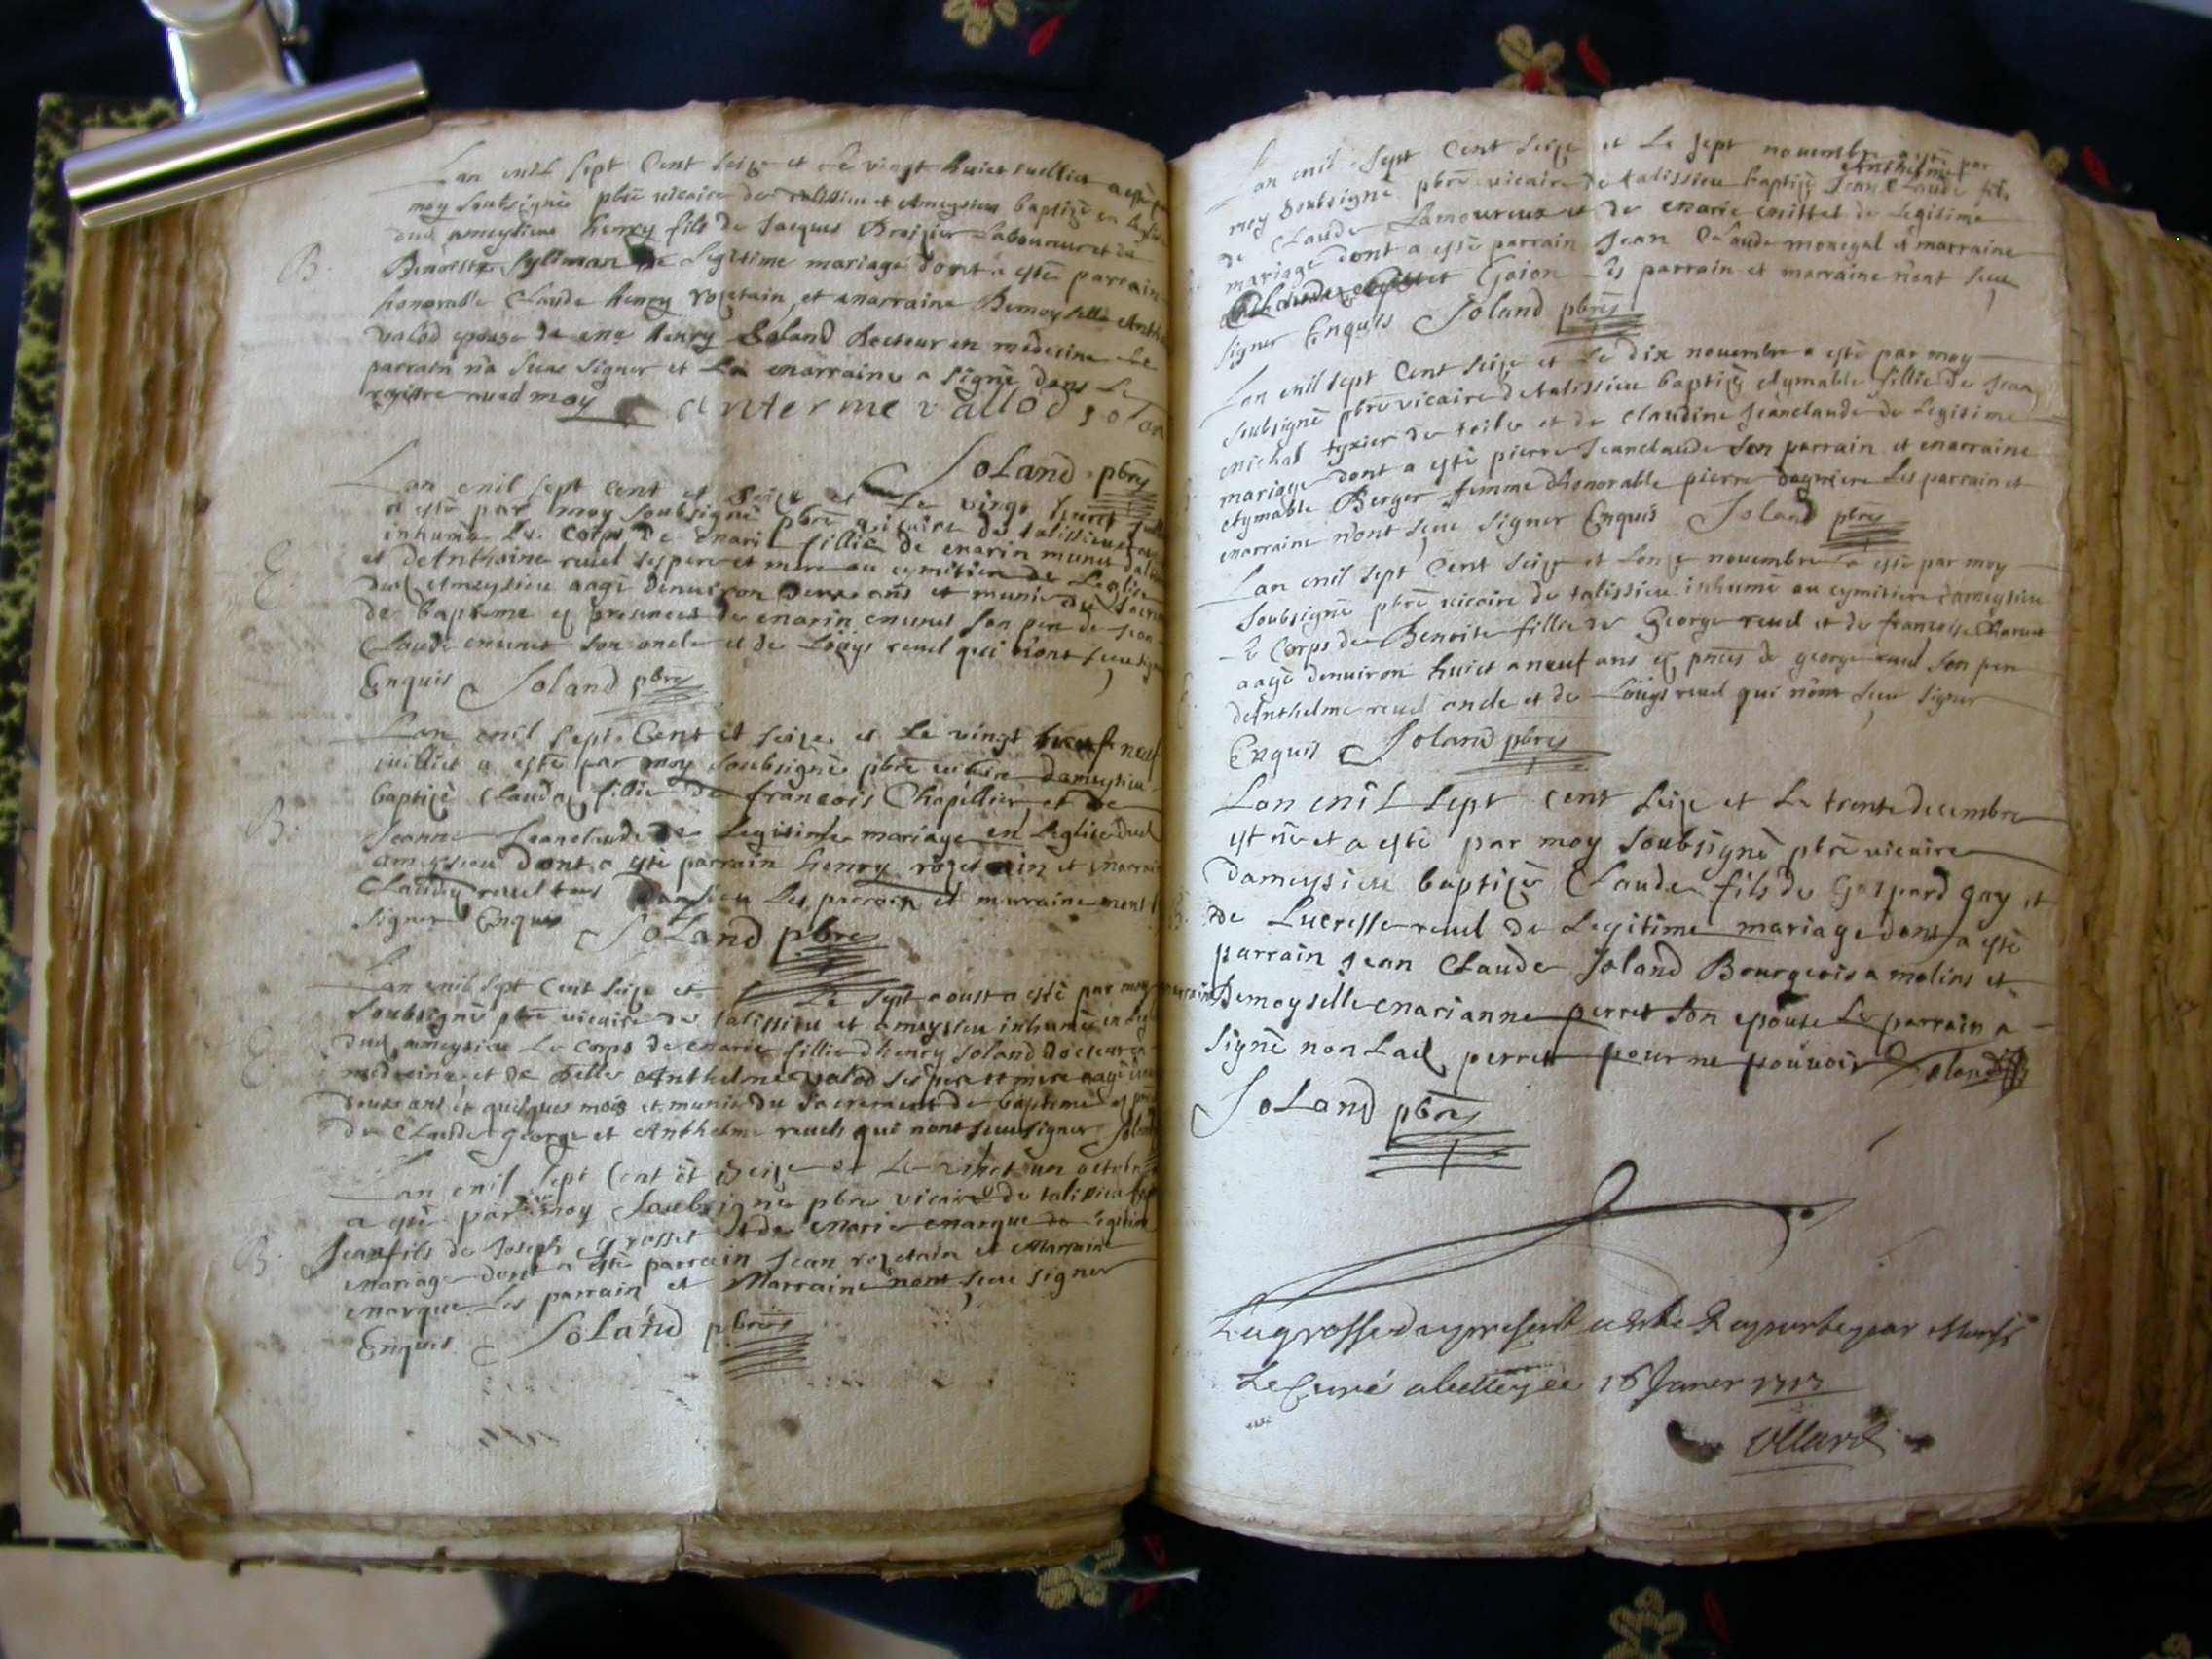 Lan mil sept Cent seize et Le vingt huict Juelliet a esté
moy soubsigné pbre vicaire de talissieu et Ameysieu baptizé en
dud ameysieu henry fils de Jacques Laboureur et de
B. Benoiste de Legitime mariage dont a esté parrain
honorable Claude henry rozetain et marraine Demoyselle Anth
valod epouse de me henry Soland docteur en medecine Le
parrain na sceu signer et La marraine a signé dans Le
registre avec moy anterme vallod solan
Soland pbre
Lan mil sept cent et seize et Le vingt huict
a esté par moy soubsigné pbre vicaire de talissieu
inhumé Le Corps de Marie fillie de marin munet
et deAnthoine revel ses pere et mere au cymitiere de Leglise
E. dud Ameysieu aagé denuiron deux ans et munie du
de bapteme es presences de marin munet son pere de Jean
Claude munet son oncle et de Loüys revel qui nont sceu
Enquis Soland pbre
Lan mil sept Cent et seize et Le vingt neuf
juilliet a esté par moy soubsigné pbre vicaire dameysieu
baptizé Clauda fillie de francois Chapellier et de
B. Jeanne Jeanclaude de Legitime mariage en Leglise dud
ameysieu dont a esté parrain henry rozetain et
Clauda revel Les parrain et marraine nont
signer Enquis Soland pbre
Lan mil sept Cent seize et Le sept aoust a esté par moy
soubsigné pbre vicaire de talissieu et ameysieu inhumé
dud ameysieu Le Corps de marie fillie dhenry Soland docteur en
E. medecine et de Anthelme valod ses pere et mere aagé
douze ans et quelques mois et munie du sacrement de bapteme
de Claude George et Anthelme revels qui nont sceu signer
Lan mil sept Cent et seize et Le vingt un octobre
a esté par moy soubsigné pbre vicaire de talissieu
B. Jean fils de Joseph grosset et de marie marque de Legitime
mariage dont a esté parrain Jean rozetain et Marraine
marque Les parrain et Marraine nont sceu signer
Enquis Soland pbre
Lan mil sept Cent seize et Le sept novembre a esté par
moy soubsigné pbre vicaire de talissieu baptizé Jean Claude Anthelme fils
de Claude Lamoureux et de marie mittet de Legitime
mariage dont a esté parrain Jean Claude monegal et marraine
Gojon Les parrain et marraine nont sceu
signer Enquis Soland pbre
Lan mil sept Cent seize et Le dix novembre a esté par moy
soubsigné pbre vicaire de talissieu baptizé Aymable fillie de Jean
michal tyxier de toile et de Claudine Jeanclaude de Legitime
mariage dont a esté pierre Jeanclaude son parrain et marraine
Aymable Berger femme dhonorable pierre Les parrain et
marraine nont sceu signer Enquis Soland pbre
Lan mil sept Cent seize et Lonze novembre a esté par moy
soubsigné pbre vicaire de talissieu inhumé au cymitiere dameysieu
Le Corps de Benoite fillie de George revel et de francoise
aagé denuiron huict a neuf ans es pnces de george revel son pere
deAnthelme revel oncle et de Loüys revel qui nont sceu signer
Enquis Soland pbre
Lan mil sept cent seize et Le trente decembre
est né et a esté par moy soubsigné pbre vicaire
dameysieu baptizé Claude fils de Gaspard gay et
de Lucresse revel de Legitime mariage dont a esté
parrain Jean Claude Soland Bourgeois a molins et
marraine Demoyselle marianne perret son epouse Le parrain a
signé non Lad perret pour ne pouvoir Soland
Soland pbre
La grosse du present a esté Raportee par
Le Curé a ce 16 Janver 1717
Ullard